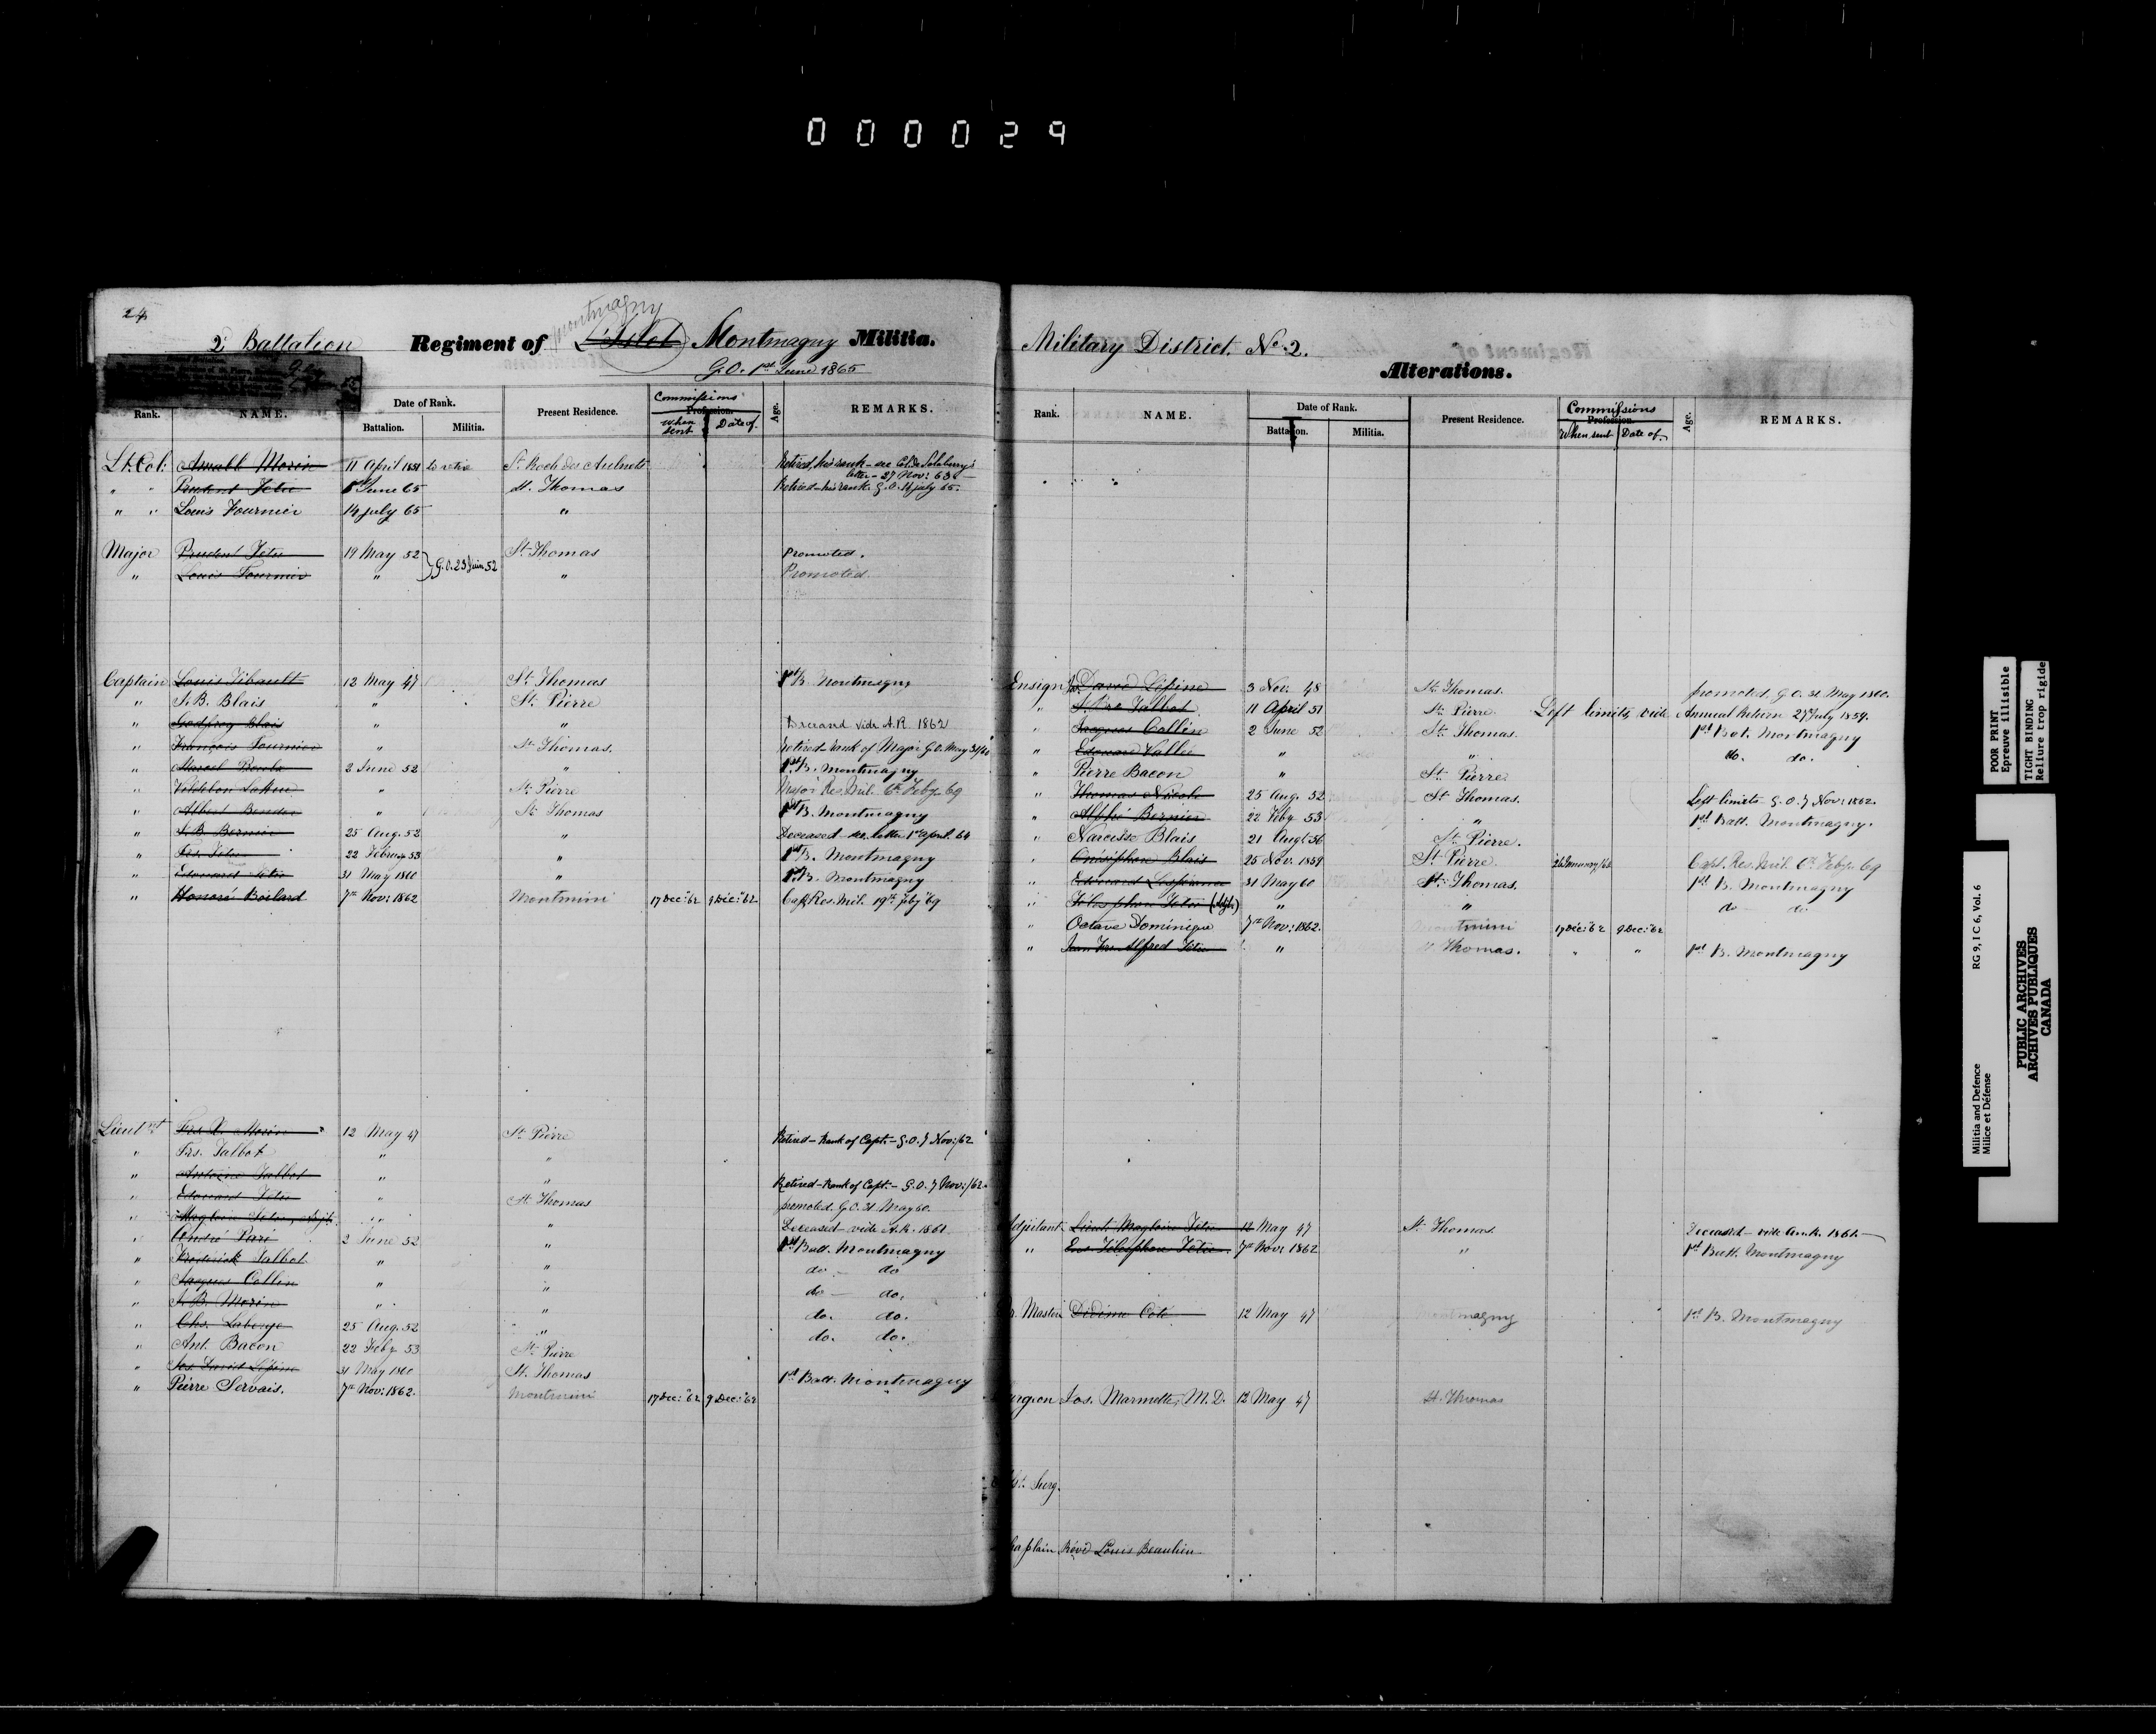 000029
24
2 Battalion Regiment of L'Islet Montmagny Militia.
Montmagny
G.O. 1st June 1865
Date of Rank. Commissions
Rank. NAME. Battalion. Militia. Present Residence. Profession. When sent Date of. Age. REMARKS.
Lt. Col: Amable Morin 11 April 1851 to retire St Roch des Aulnets Retired, his rank - see Col. de Salaberry's
letter - 27 Nov: 63 -
" " Prudent Têtu June 65 St. Thomas Retired - his rank. G.O. 14 July 65.
" " Louis Fournier 14 July 65 "
Major Prudent Têtu 19 May 52 G.O. 23 52 St Thomas Promoted.
" Louis Fournier " " Promoted
Captain Louis Tibault 12 May 47 St Thomas 1st B. Montmagny
" J. B. Blais " St Pierre
" Godfroy Blais " " Deceased vide A.R. 1862
" François Fournier " St Thomas. Retired rank of Major G.O. May 31/60
" Marcel 2 June 52 " 1st B. Montmagny
" " St Pierre Major Res. Mil. 6th Feby. 69
" Albert Bender " St Thomas 1st B. Montmagny
" J. B. Bernier 25 Aug. 52 " Deceased - letter 1st April. 64
" Frs. Têtu 22 Februy 53 " 1st B. Montmagny
" Edouard Têtu 31 May 1860 " 1st B. Montmagny
" Honoré Boilard 7th Nov: 1862 Montmini 17 Dec: "62 9 Dec: "62. Capt. Res. Mil. 19th Feby "69
Lieutnt Frs. X. Morin 12 May 47 St Pierre Retired - Rank of Capt. - G.O. 7 Nov:/62
" Frs. Talbot " "
" Antoine Talbot " " Retired - Rank of Capt. - G.O. 7 Nov:/62.
" Edouard Têtu " St Thomas promoted. G.O. 31 May 60.
" Magloire Têtu, Adjt. " " Deceased - vide A.R. 1861
" André Paré 2 June 52 " 1st Batt. Montmagny
" Frederick Talbot " " do - do
" Jacques Collin " " do - do.
" J. B. Morin " " do. do.
" Chs. Laberge 25 Aug. 52 " do. do.
" Ant. Bacon 22 Feby 53 St Pierre
" Jos. David Lépine 31 May 1860 St. Thomas 1st Batt. Montmagny
" Pierre Servais. 7th Nov: 1862. Montmini 17 Dec: "62 9 Dec: "62
Military District. No. 2.
Alterations.
Date of Rank. Commissions
Rank. NAME. Battalion. Militia. Present Residence. Profession. When sent Date of. Age. REMARKS.
Ensign Js. David Lépine 3 Nov: 48 St. Thomas. promoted. G.O. 31 May 1860.
" J. Bte Talbot 11 April 51 St. Pierre. Left limits, vide Annual Return 27 July 1859.
" Jacques Collin 2 June 52 St. Thomas. 1st Bat. Montmagny
" Edouard Vallée " " do. do.
" Pierre Bacon " St Pierre
" Thomas Nicole 25 Aug. 52 St Thomas. Left limits G.O. 7 Nov: 1862.
" Alphé Bernier 22 Feby 53 " 1st Batt. Montmagny.
" Narcisse Blais 21 Augt 56 St Pierre.
" Onésiphore Blais 25 Nov. 1859 St Pierre. 26 January/63 Capt. Res. Mil. 6th Feby 69
" Edouard Lespérance 31 May 60 St. Thomas. 1st B. Montmagny
" Télesphore Têtu (Adjt.) " " do do
" Octave Dominique 7th Nov: 1862. Montmini 17 Dec: "62 9 Dec: "62
" Jean Frs. Alfred Têtu " St Thomas. " " 1st B. Montmagny
Adjutant Lieut. Magloire Têtu 12 May 47 St Thomas. Deceased - vide An. R. 1861. -
" Ens. Télesphore Têtu 7th Nov: 1862 " 1st Batt. Montmagny
Qr. Master Didime Coté 12 May 47 Montmagny 1st B. Montmagny
Surgeon Jos. Marmette, M.D. 12 May 47 St. Thomas
Asst. Surg.
Chaplain Revd Louis Beaulieu
POOR PRINT
Epreuve illisible
TIGHT BINDING
Reliure trop rigide
Militia and Defence RG 9, I C 6, Vol. 6
Milice et Défense
PUBLIC ARCHIVES
ARCHIVES PUBLIQUES
CANADA